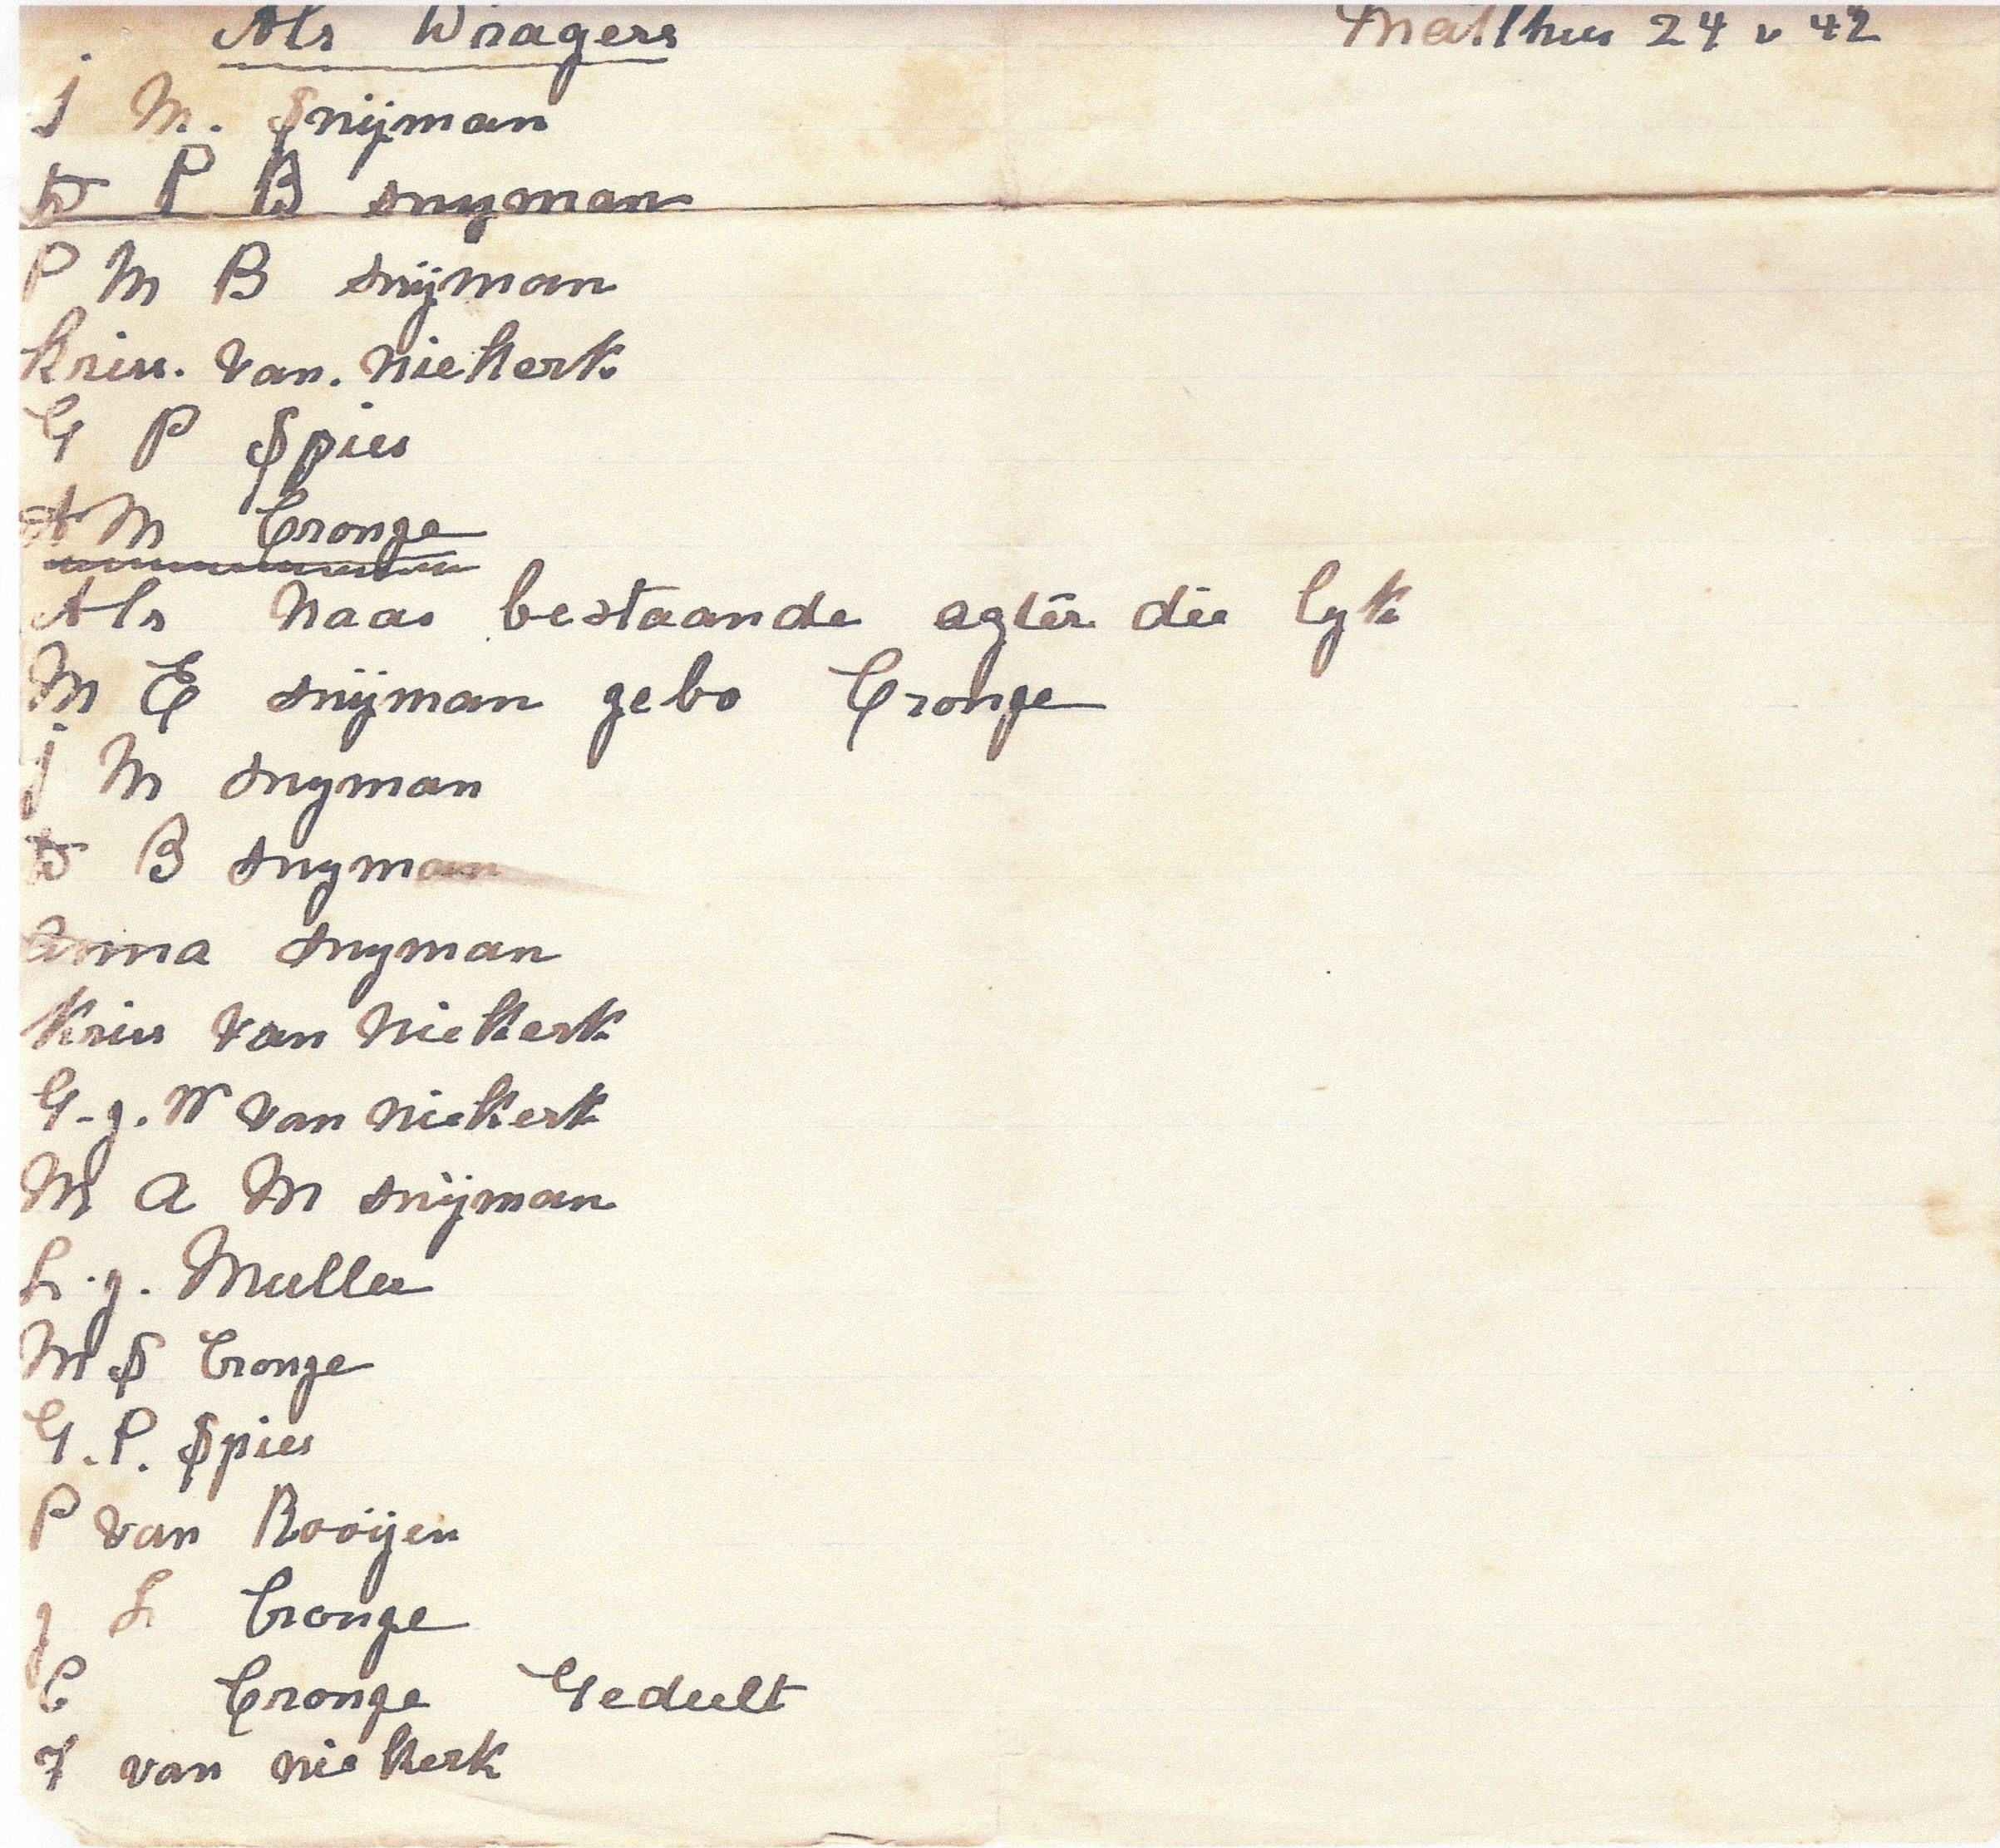 Als Dragers
Matthus 24 v 42
J M. Snijman
D P B snyman
P M B snijman
Kriss. van. Niekerk
G P Spies
A M Cronge
Als Naas bestaande agter die lyk
M E snijman gebo Cronge
J M snyman
D B snyman
Anna snyman
Kriss van Niekerk
G. J. W van Niekerk
M A M snijman
L. J. Muller
M S Cronge
G. P. Spies
P van Rooijen
J L Cronge
C Cronge Gedult
F van niekerk